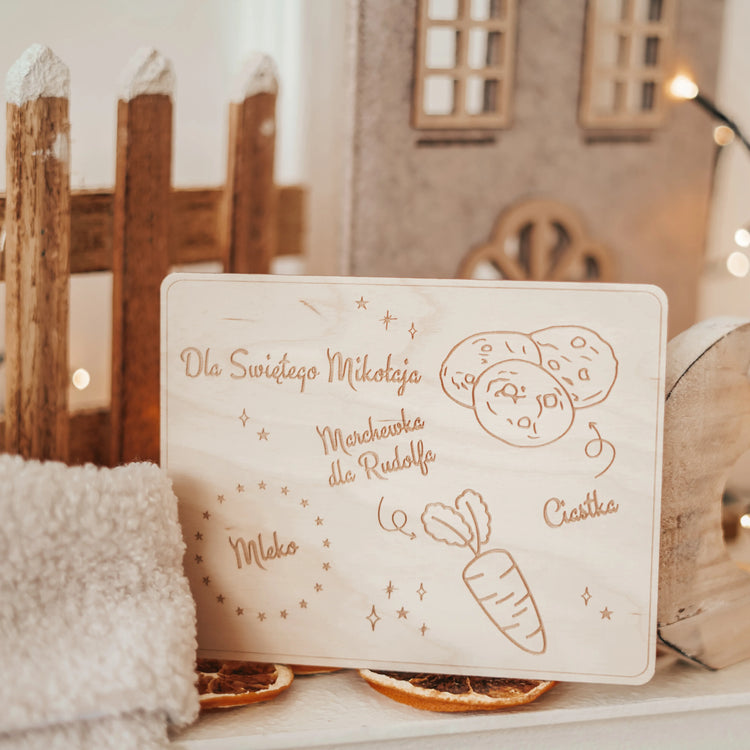 Dla Świętego Mikołaja
Marchewka
dla Rudolfa
Ciastka
Mleko